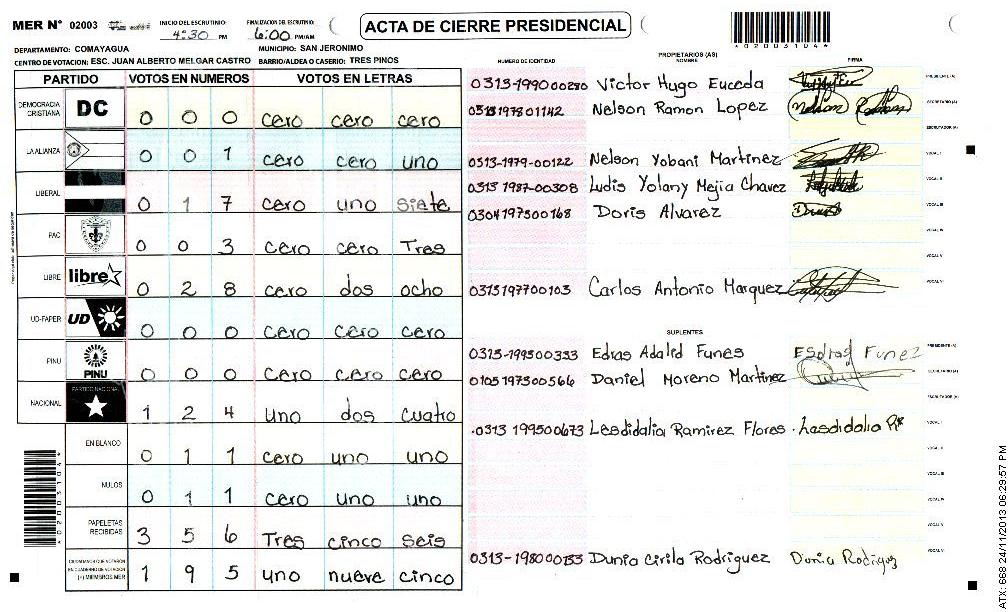 MER N° 02003
INICIO DEL ESCRUTINIO: 4:30 PM
FINALIZACION DEL ESCRUTINIO: 6:00 PM/AM
ACTA DE CIERRE PRESIDENCIAL
*0200310 4*
DEPARTAMENTO: COMAYAGUA MUNICIPIO: SAN JERONIMO
CENTRO DE VOTACION: ESC. JUAN ALBERTO MELGAR CASTRO BARRIO/ALDEA O CASERIO: TRES PINOS
PARTIDO VOTOS EN NUMEROS VOTOS EN LETRAS
DEMOCRACIA CRISTIANA DC 0 0 0 cero cero cero
LA ALIANZA 0 0 1 cero cero uno
LIBERAL 0 1 7 cero uno siete
PAC 0 0 3 cero cero Tres
LIBRE libre 0 2 8 cero dos ocho
UD-FAPER UD 0 0 0 cero cero cero
PINU PINU 0 0 0 cero cero cero
NACIONAL PARTIDO NACIONAL 1 2 4 uno dos cuatro
EN BLANCO 0 1 1 cero uno uno
NULOS 0 1 1 cero uno uno
PAPELETAS RECIBIDAS 3 5 6 Tres cinco seis
CIUDADANOS QUE VOTARON EN CUADERNO DE VOTACION (+) MIEMBROS MER 1 9 5 uno nueve cinco
PROPIETARIOS (AS)
NUMERO DE IDENTIDAD NOMBRE FIRMA
Victor Hugo Euceda PRESIDENTE (A)
Nelson Ramon Lopez SECRETARIO (A)
ESCRUTADOR (A)
0313-1979-00122 Nelson Yobani Martinez VOCAL I
0313 1987-00308 Ludis Yolany Mejia Chavez VOCAL II
0304197500168 Doris Alvarez VOCAL III
VOCAL IV
VOCAL V
0313197700103 Carlos Antonio Marquez VOCAL VI
SUPLENTES
0313-199500333 Edras Adalid Funes Esdras Funez PRESIDENTE (A)
0105197300566 Daniel Moreno Martinez SECRETARIO (A)
ESCRUTADOR (A)
0313 199500673 Lesdidalia Ramirez Flores Lesdidalia VOCAL I
VOCAL II
VOCAL III
VOCAL IV
VOCAL V
0313-198000133 Dunia Cirila Rodriguez Dunia Rodriguez VOCAL VI
ATX: 668 24/11/2013 06:29:57 PM